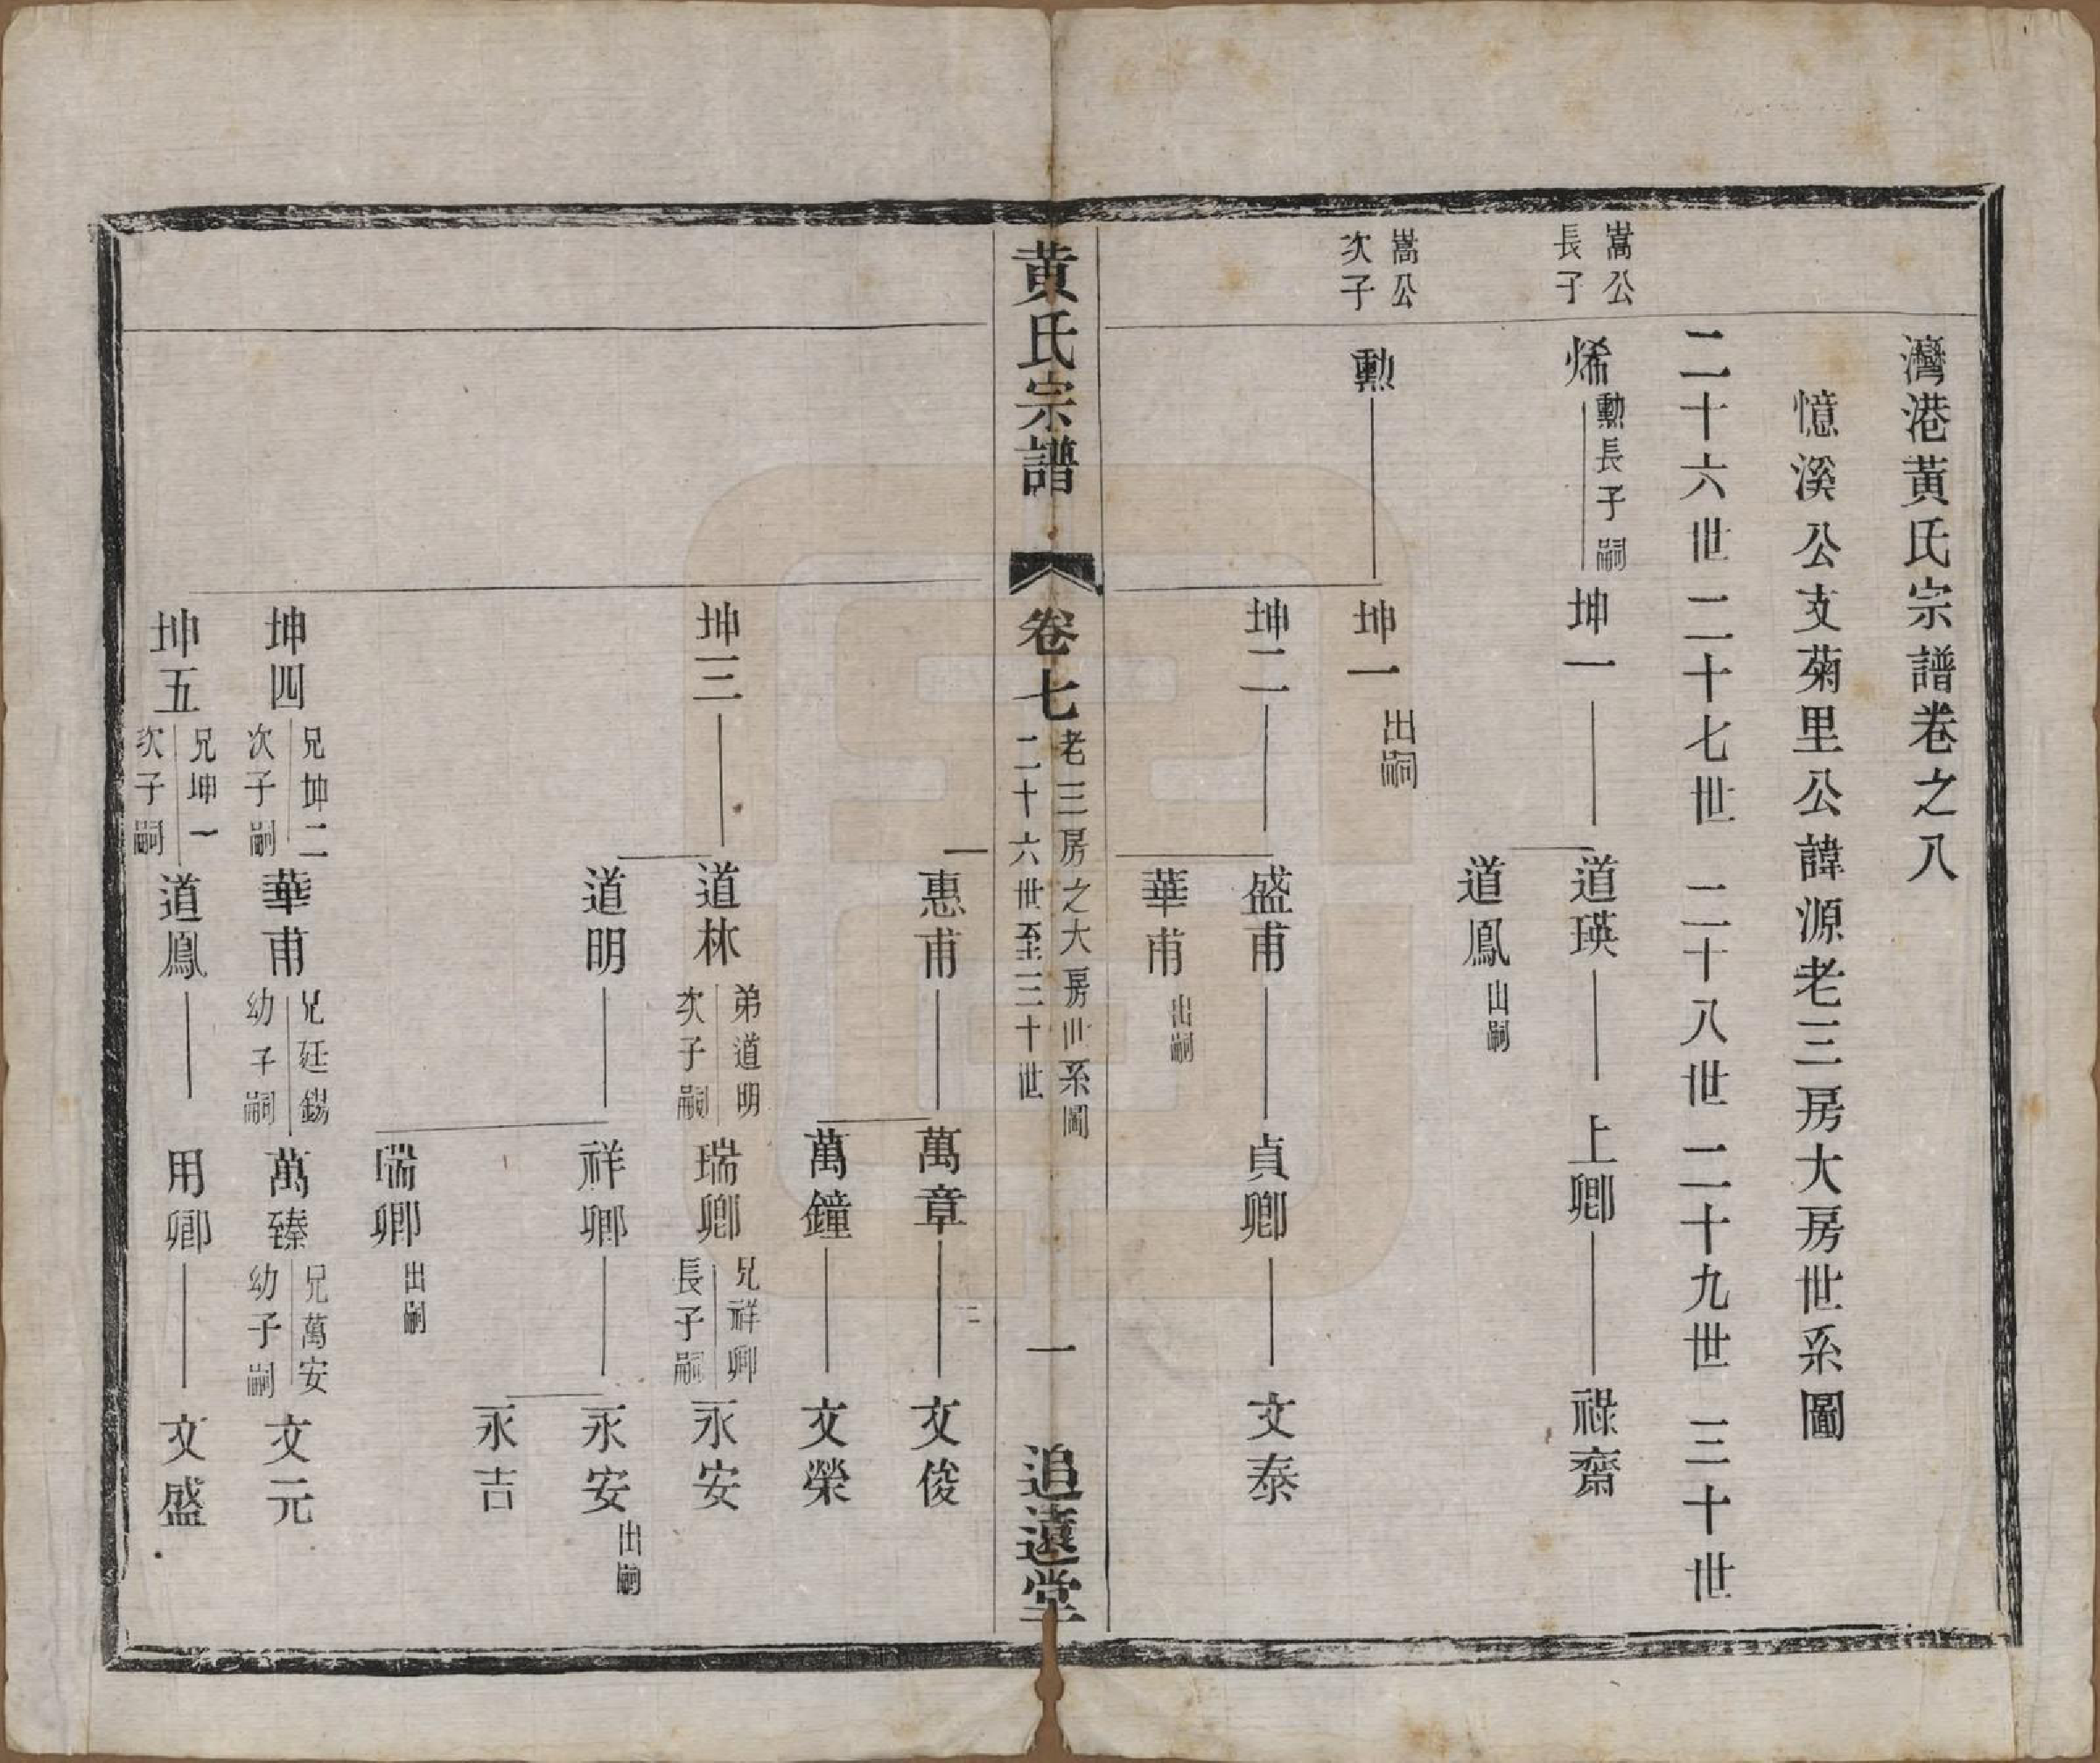 灣港黃氏宗譜卷之八
憶溪公支菊里公諱源老三房大房世系圖
二十六世 二十七世 二十八世 二十九世 三十世
嵩公長子 烯 勳長子嗣 坤一 道瑛 上卿 祿齋
道鳳 出嗣
嵩公次子 勳 坤一 出嗣
坤二 盛甫 貞卿 文泰
華甫 出嗣
黃氏宗譜 卷七 老三房之大房世系圖 二十六世至三十世 一 追遠堂
惠甫 萬章 文俊
萬鐘 文榮
坤三 道林 弟道明次子嗣 瑞卿 兄祥卿長子嗣 永安
道明 祥卿 永安 出嗣
永吉
瑞卿 出嗣
坤四 兄坤二次子嗣 華甫 兄廷錫幼子嗣 萬臻 兄萬安幼子嗣 文元
坤五 兄坤一次子嗣 道鳳 用卿 文盛